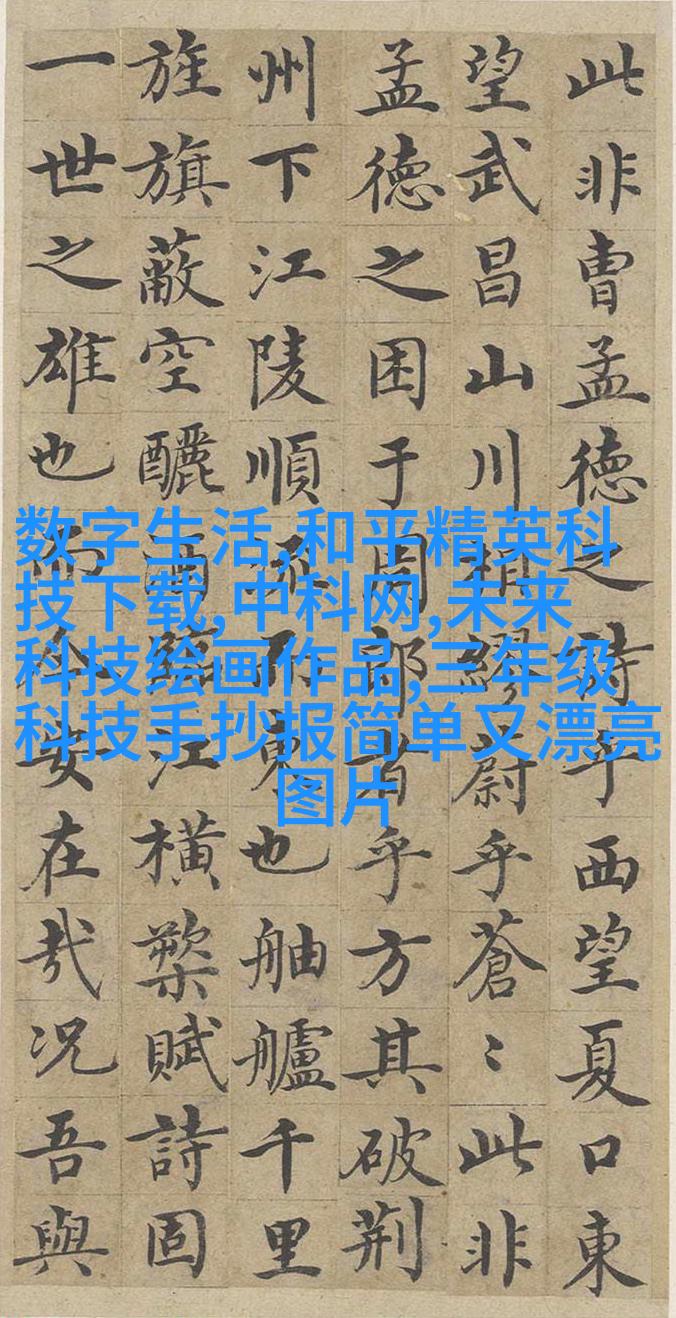 此非曹孟德之詩乎西望夏口東
望武昌山川相繆蔚乎蒼〻此非
孟德之困于周郎者乎方其破荆
州下江陵順流而東也舳艫千里
旌旗蔽空釃酒臨江横槊賦詩固
一世之雄也而今安在哉况吾與
数字生活,和平精英科
技下载,中科网,未来
科技绘画作品,三年级
科技手抄报简单又漂亮
图片